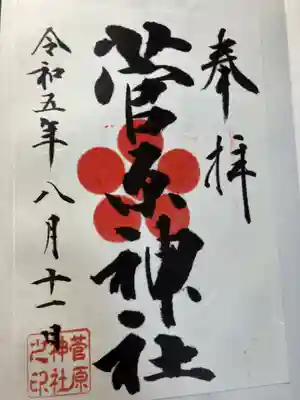 奉拝
菅原神社
令和五年八月十一日
菅原
神社
之印